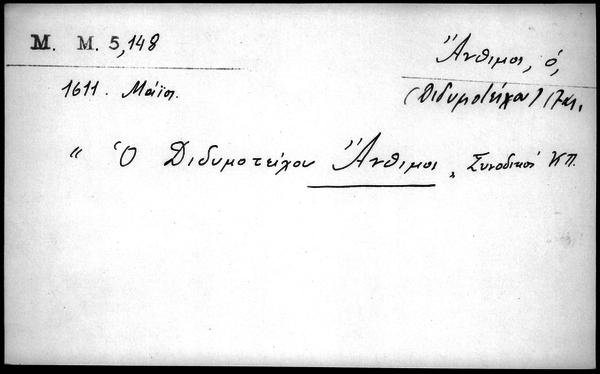 M. M. 5,148
Ἄνθιμος, ὁ,
1611. Μάϊος.
(Διδυμοτείχου)
" Ὁ Διδυμοτείχου Ἄνθιμος „ Συνοδικοῦ ΚΠ.